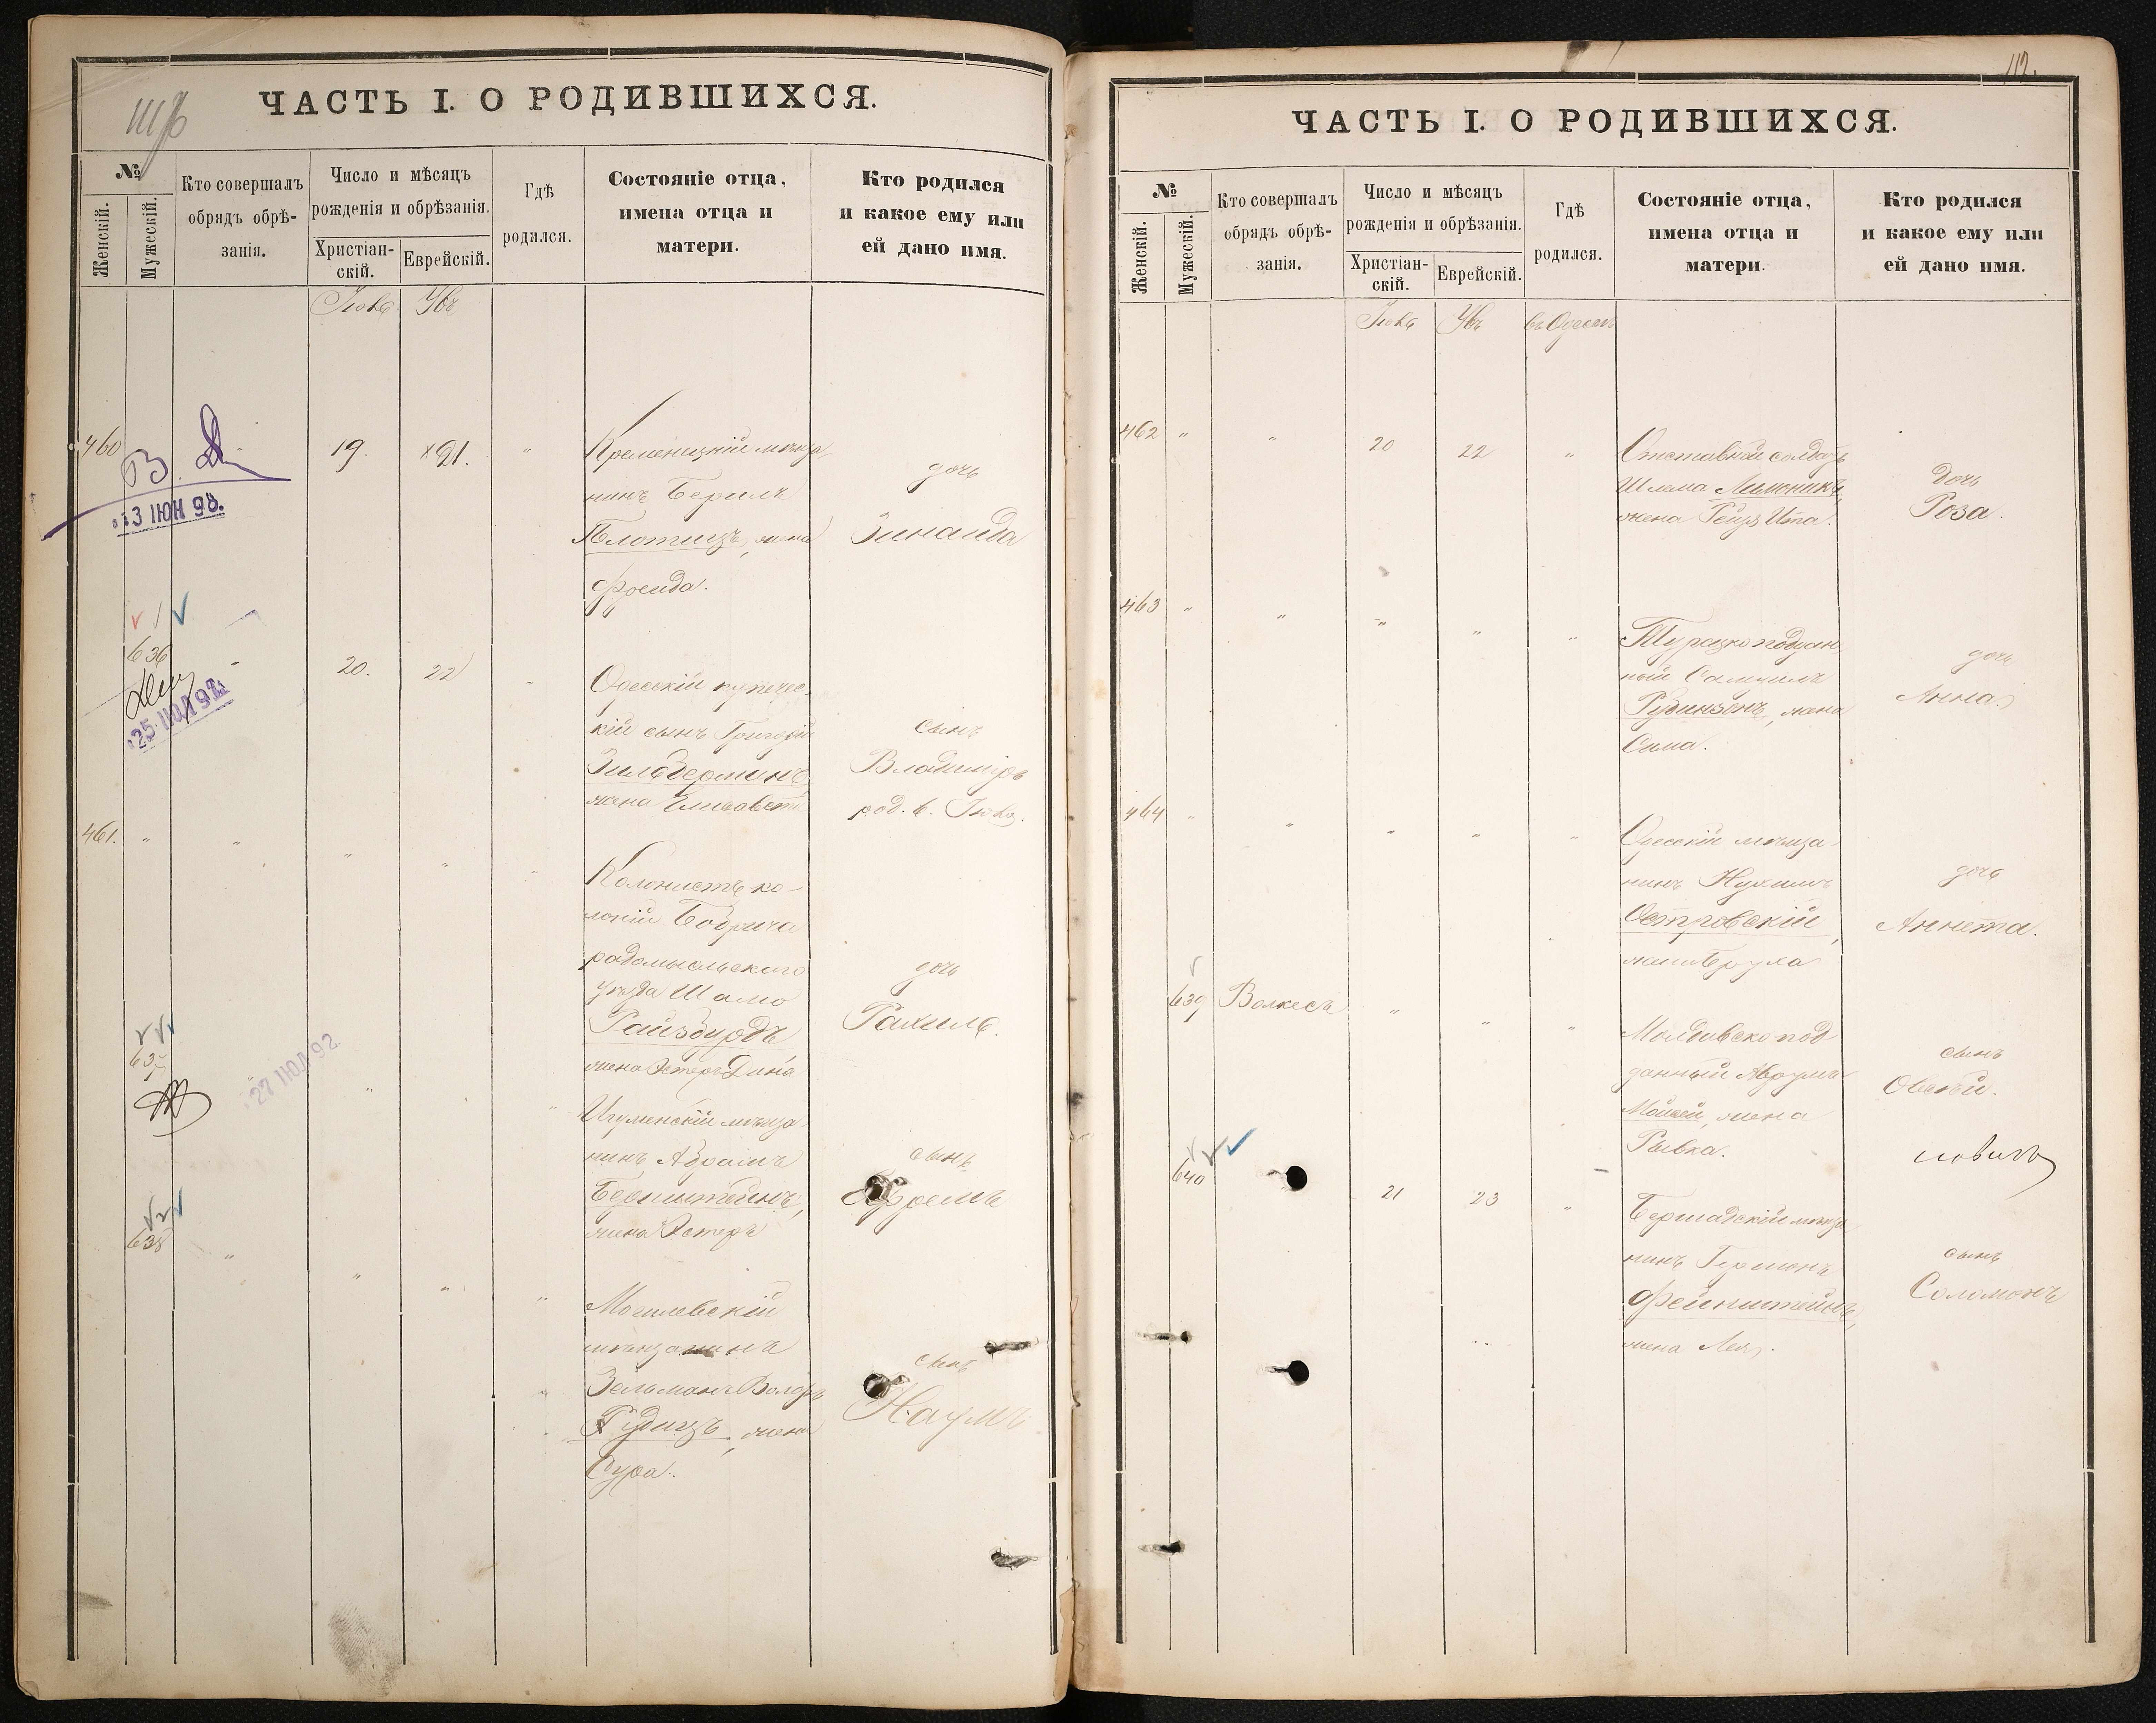 ЧАСТЬ I. О РОДИВШИХСЯ.
№
Женскій.
Мужескій.
Кто совершалъ
обрядъ обрѣ-
занія.
Число и мѣсяцъ
рожденія и обрѣзанія.
Христіан-
скій.
Еврейскій.
Гдѣ
родился.
Состояніе отца,
имена отца и
матери.
Кто родился
и какое ему или
ей дано имя.
460
19.
21.
"
Кременицкій мѣща
нинъ Берилъ
Плотицъ, жена
Фрейда.
дочь
Зинаида
13 ІЮН 98.
636
20.
22
"
Одесскій купечес-
кій сынъ Григорій
Зильберманъ
жена Елисавета
сынъ
Владиміръ
род. 6. Іюня.
25 ІЮЛ 92
461.
"
"
"
"
"
Колонистъ ко-
лоніи Бобрича
радомысльскаго
уѣзда Шамо
Райзбурдъ
жена Эстеръ Дина
дочь
Рахиль.
637
27 ІЮЛ 92
"
"
Игуменскій мѣща
нинъ Абрамъ
Бернштейнъ,
жена Эстеръ
сынъ
Ефремъ
638
"
"
"
"
Могилевскій
мѣщанинъ
Зельманъ Волфъ
Гудицъ, жена
Сура.
сынъ
Наумъ
112.
ЧАСТЬ I. О РОДИВШИХСЯ.
№
Женскій.
Мужескій.
Кто совершалъ
обрядъ обрѣ-
занія.
Число и мѣсяцъ
рожденія и обрѣзанія.
Христіан-
скій.
Еврейскій.
Гдѣ
родился.
Состояніе отца,
имена отца и
матери.
Кто родился
и какое ему или
ей дано имя.
въ Одессѣ
462
"
"
20
22
"
Отставной солдатъ
Шлема Лимоникъ,
жена Рейзя Ита.
дочь
Роза.
463
"
"
"
"
"
Турецкоподдан
ный Самуилъ
Рубинзонъ, жена
Сима.
дочь
Анна
464
"
"
"
"
"
Одесскій мѣща
нинъ Нухимъ
Островскій,
жена Бруха
дочь
Аннета.
639
Волкесъ
"
"
"
Молдавскопод
данный Аврумъ
Мойсей, жена
Рывка.
сынъ
Овсѣй.
640
21
23
"
Бершадскій мѣща
нинъ Германъ
Фейнштейнъ,
жена Лея.
сынъ
Соломонъ